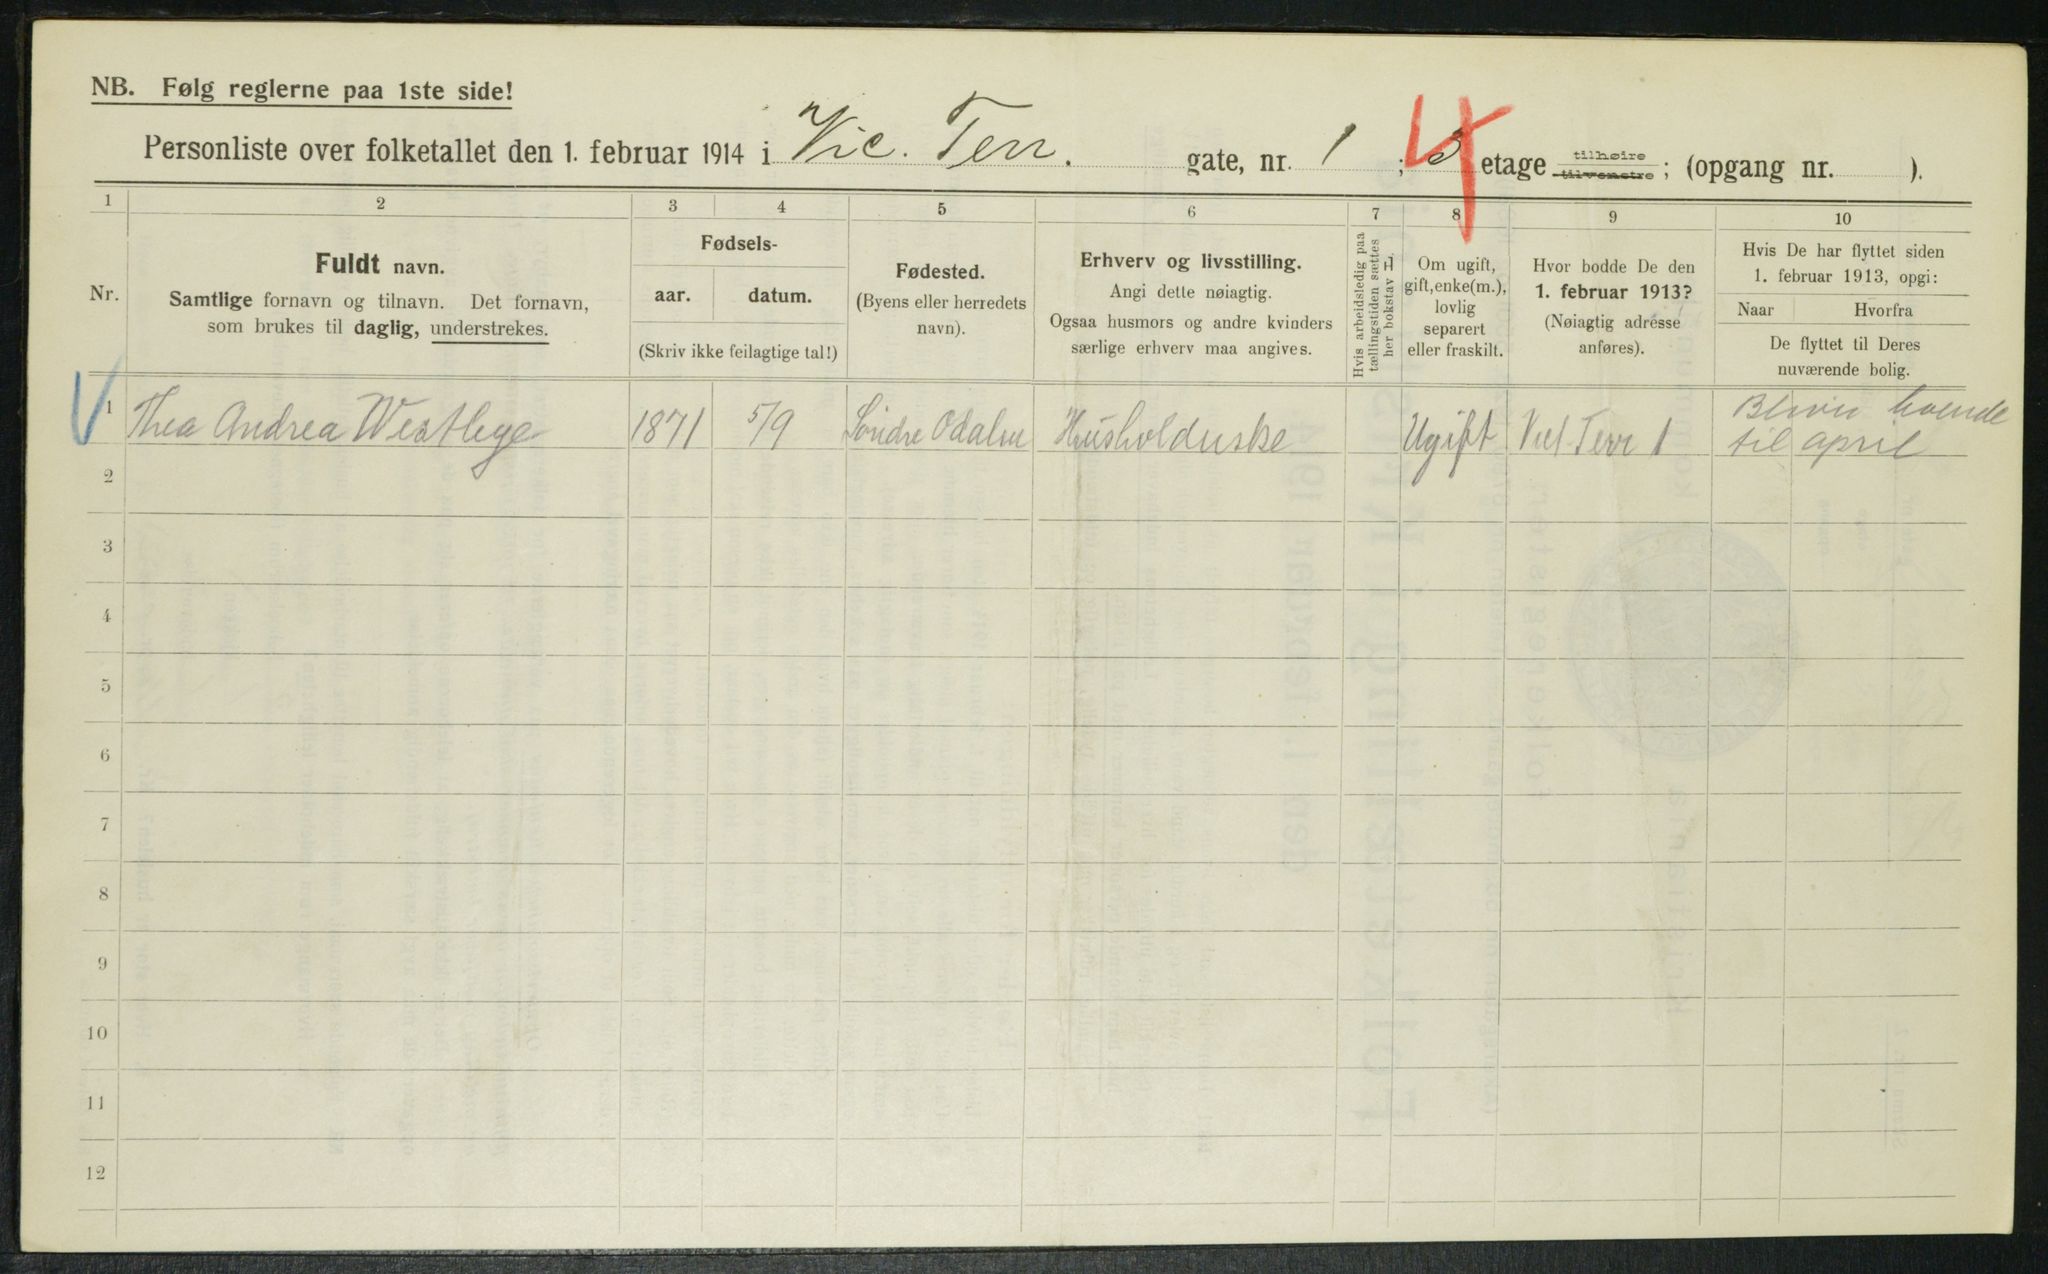 NB. Følg reglerne paa 1ste side!
Personliste over folketallet den 1. februar 1914 i Vic. Terr. gate, nr. 1 ; 3 4 etage tilhøire tilvenstre ; (opgang nr. ).
1 2 3 4 5 6 7 8 9 10
Nr.
Fuldt navn.
Samtlige fornavn og tilnavn. Det fornavn,
som brukes til daglig, understrekes.
Fødsels-
aar. datum.
(Skriv ikke feilagtige tal!)
Fødested.
(Byens eller herredets
navn).
Erhverv og livsstilling.
Angi dette nøiagtig.
Ogsaa husmors og andre kvinders
særlige erhverv maa angives.
Hvis arbeidsledig paa
tællingstiden sættes
her bokstav L
Om ugift,
gift, enke(m.),
lovlig
separert
eller fraskilt.
Hvor bodde De den
1. februar 1913?
(Nøiagtig adresse
anføres).
Hvis De har flyttet siden
1. februar 1913, opgi:
Naar Hvorfra
De flyttet til Deres
nuværende bolig.
1 Thea Andrea Westbye 1871 5/9 Söndre Odalen Husholderske Ugift Vict Terr 1 Bliver boende
til april
2
3
4
5
6
7
8
9
10
11
12